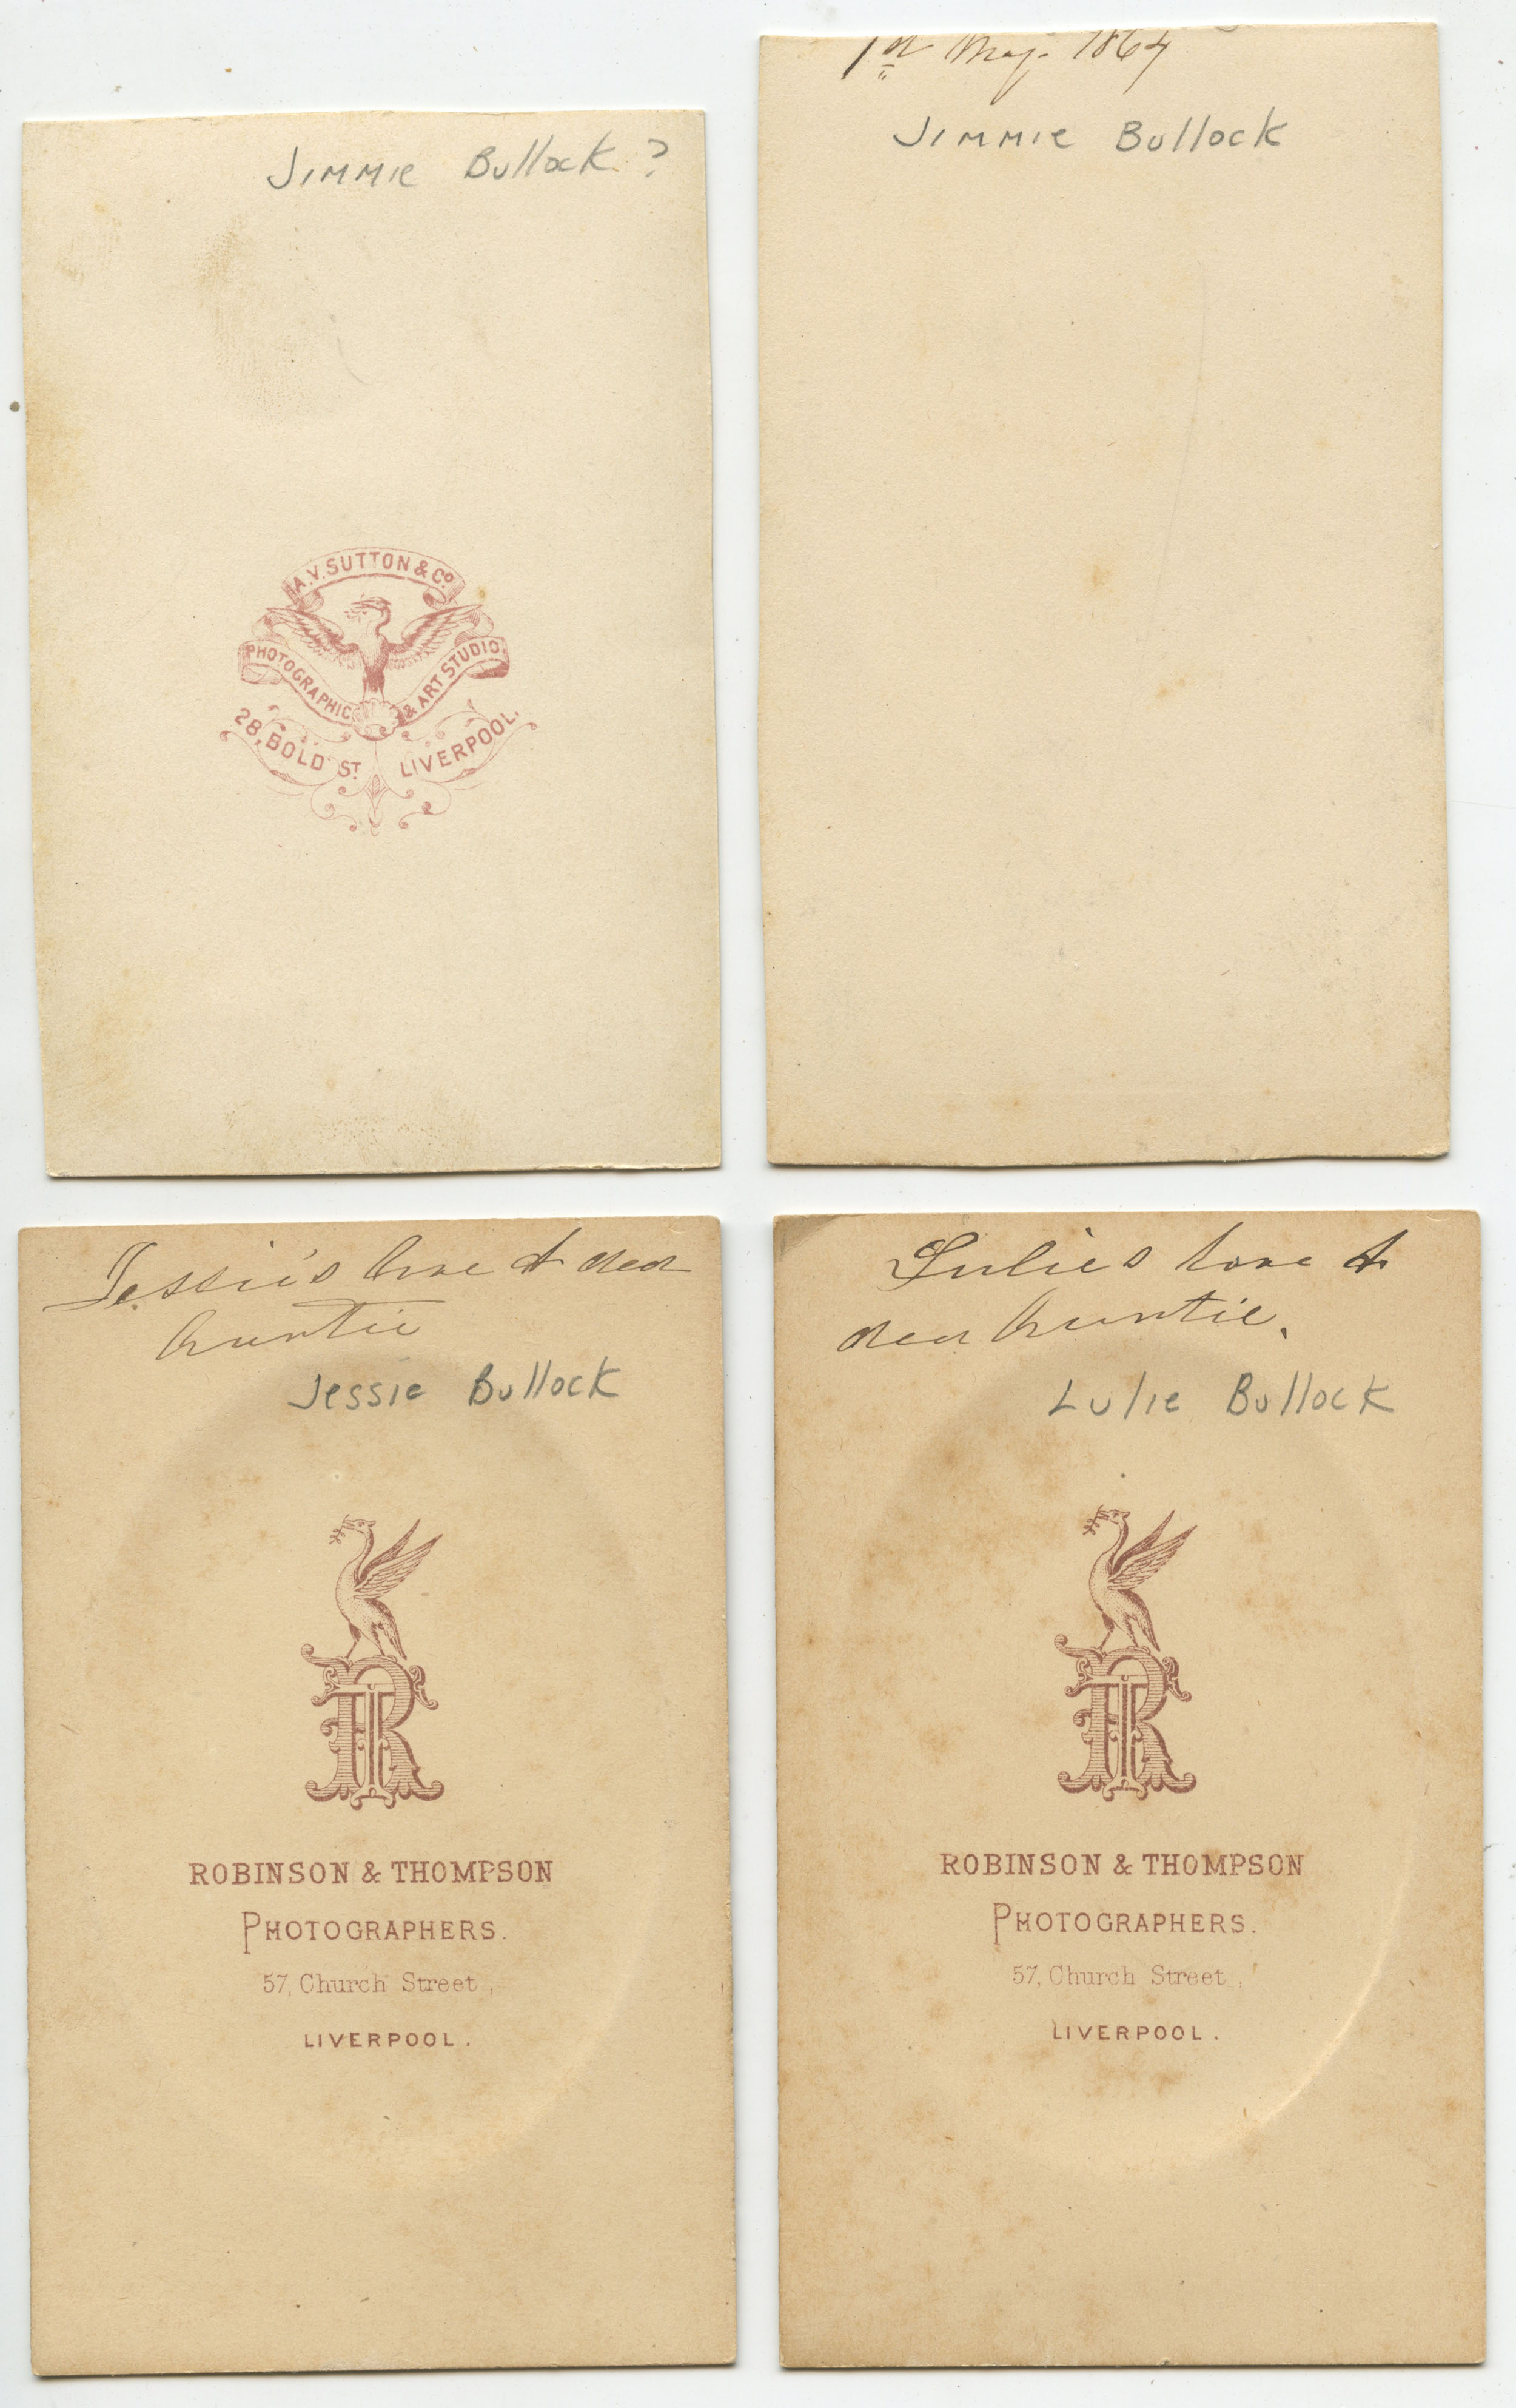 Jimmie Bullock ?
A.V. SUTTON & Co
PHOTOGRAPHIC & ART STUDIO
28, BOLD ST LIVERPOOL.
1st May. 1864
Jimmie Bullock
Jessie's love to dear
Auntie
Jessie Bullock
R T
ROBINSON & THOMPSON
PHOTOGRAPHERS.
57, Church Street,
LIVERPOOL.
Lulie's love to
dear Auntie.
Lulie Bullock
R T
ROBINSON & THOMPSON
PHOTOGRAPHERS.
57, Church Street,
LIVERPOOL.